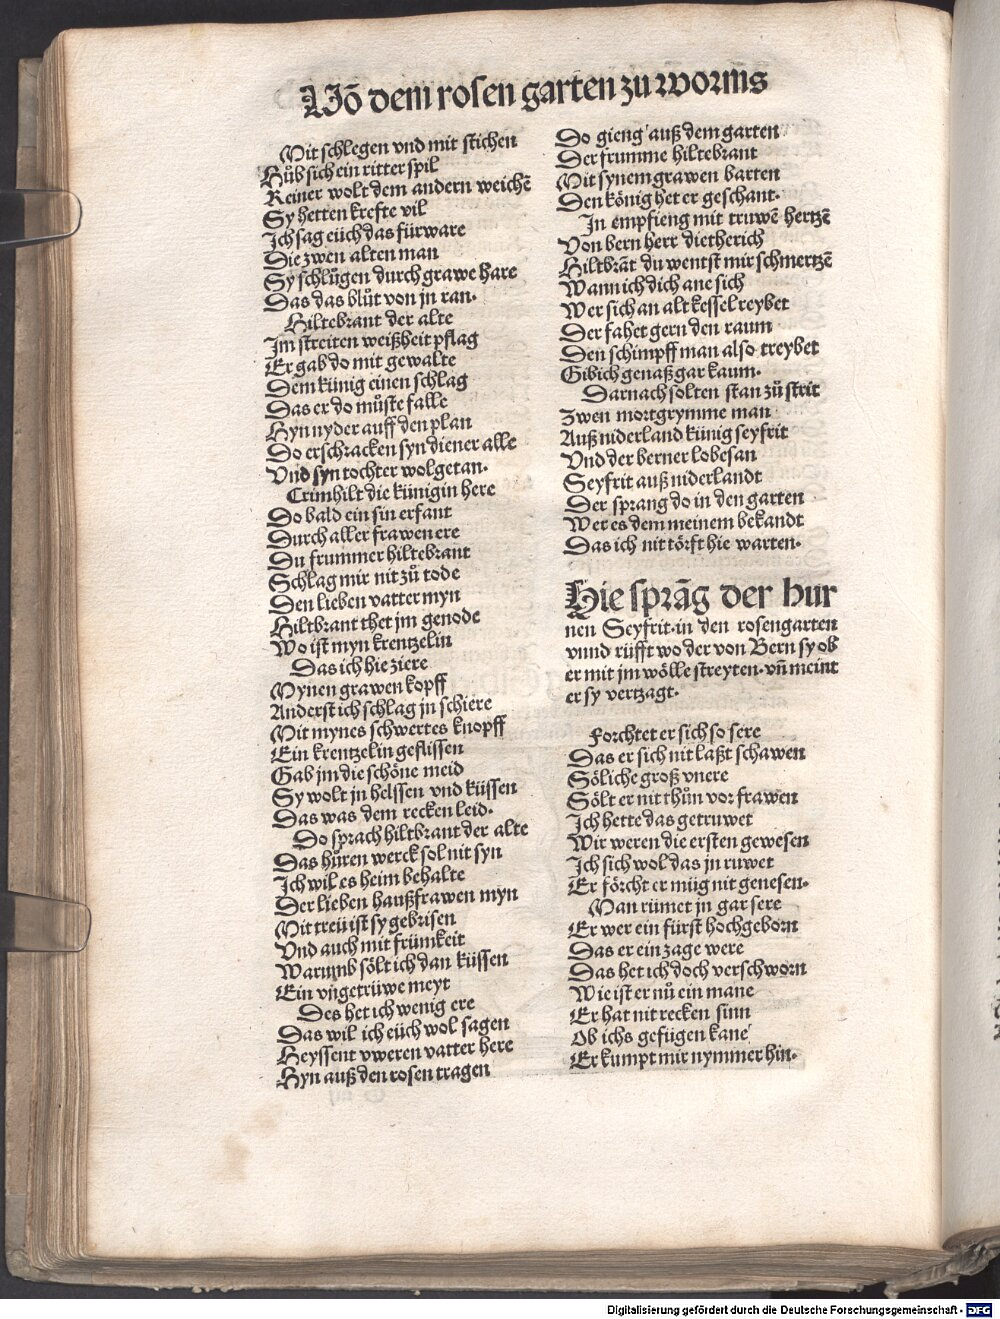 Võ dem rosen garten zu worms
Mit schlegen vnd mit stichen
Hůb sich ein ritter spil
Keiner wolt dem andern weichẽ
Sy hetten krefte vil
Ich sag eüch das fürware
Die zwen alten man
Sy schlůgen durch grawe hare
Das das blůt von jn ran.
Hiltebrant der alte
Im streiten weißheit pflag
Er gab do mit gewalte
Dem künig einen schlag
Das er do můste falle
Hyn nyder auff den plan
Do erschracken syn diener alle
Vnd syn tochter wolgetan.
Crimhilt die künigin here
Do bald ein sin erfant
Durch aller frawen ere
Du frummer hiltebrant
Schlag mir nit zů tode
Den lieben vatter myn
Hiltbrant thet jm genode
Wo ist myn krentzelin
Das ich hie ziere
Mynen grawen kopff
Anderst ich schlag jn schiere
Mit mynes schwertes knopff
Ein krentzelin geflissen
Gab jm die schöne meid
Sy wolt jn helssen vnd küssen
Das was dem recken leid.
Do sprach hiltbrant der alte
Das hůren werck sol nit syn
Ich wil es heim behalte
Der lieben haußfrawen myn
Mit treü ist sy gebrisen
Vnd auch mit frümkeit
Warumb sölt ich dan küssen
Ein vngetrüwe meyt
Des het ich wenig ere
Das wil ich eüch wol sagen
Heyssent vweren vatter here
Hyn auß den rosen tragen
Do gieng auß dem garten
Der frumme hiltebrant
Mit synem grawen barten
Den könig het er geschant.
In empfieng mit truwẽ hertzẽ
Von bern herr dietherich
Hiltbrãt du wentst mir schmertzẽ
Wann ich dich ane sich
Wer sich an alt kessel reybet
Der fahet gern den raum
Den schimpff man also treybet
Gibich genaß gar kaum.
Darnach solten stan zů strit
Zwen mortgrymme man
Auß niderland künig seyfrit
Vnd der berner lobesan
Seyfrit auß niderlandt
Der sprang do in den garten
Wer es dem meinem bekandt
Das ich nit törft hie warten.
Hie sprãg der hur
nen Seyfrit in den rosengarten
vnnd rüfft wo der von Bern sy ob
er mit jm wölle streyten. vñ meint
er sy vertzagt.
Forchtet er sich so sere
Das er sich nit laßt schawen
Söliche groß vnere
Sölt er nit thůn vor frawen
Ich hette das getruwet
Wir weren die ersten gewesen
Ich sich wol das jn ruwet
Er förcht er müg nit genesen.
Man rümet jn gar sere
Er wer ein fürst hochgeborn
Das er ein zage were
Das het ich doch verschworn
Wie ist er nů ein mane
Er hat nit recken sinn
Ob ichs gefügen kane
Er kumpt mir nymmer hin.
Digitalisierung gefördert durch die Deutsche Forschungsgemeinschaft - DFG